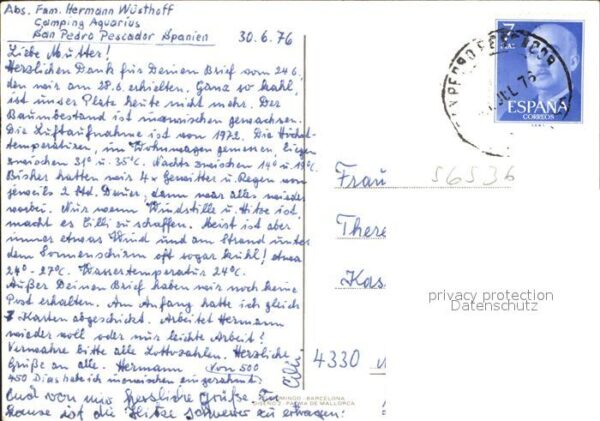 Abs. Fam. Hermann Wüsthoff
Camping Aquarius
San Pedro Pescador Spanien 30.6.76
Liebe Mutter!
Herzlichen Dank für Deinen Brief vom 24.6.
den wir am 28.6. erhielten. Ganz so kahl,
ist unser Platz heute nicht mehr. Der
Baumbestand ist inzwischen gewachsen.
Die Luftaufnahme ist von 1972. Die Höchst-
temperaturen, im Wohnwagen gemessen, liegen
zwischen 31° u. 35°C. Nachts zwischen 14° u. 19°C
Bisher hatten wir 4x Gewitter u. Regen von
jeweils 2 Std. Dauer, dann war alles wieder
vorbei. Nur wenn Windstille u. Hitze ist,
macht es Cilli zu schaffen. Meist ist aber
immer etwas Wind und am Strand unter
dem Sonnenschirm oft sogar kühl! etwa
24° - 27°C. Wassertemperatur 24°C.
Außer Deinen Brief haben wir noch keine
Post erhalten. Am Anfang hatte ich gleich
7 Karten abgeschickt. Arbeitet Hermann
wieder voll oder nur leichte Arbeit?
Verwahre bitte alle Lottozahlen. Herzliche
Grüße an alle. Hermann Von 500
450 Dias habe ich inzwischen eingerahmt
Und von mir herzliche Grüße. Zu
hause ist die Hitze schwerer zu ertragen.
Cilli
7
PTA:
ESPAÑA
CORREOS
SAN PEDRO PESCADOR
JUL. 76
56536
Frau
There
Kas
4330
privacy protection
Datenschutz
DOMINGO - BARCELONA
PALMA DE MALLORCA